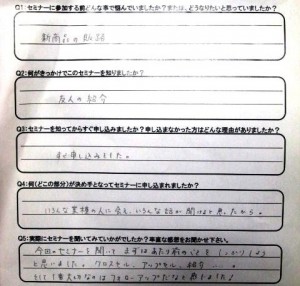 Q1:セミナーに参加する前どんな事で悩んでいましたか?または、どうなりたいと思っていましたか?
新商品の販路
Q2:何がきっかけでこのセミナーを知りましたか?
友人の紹介
Q3:セミナーを知ってからすぐ申し込みましたか?申し込まなかった方はどんな理由がありましたか?
すぐ申し込みました。
Q4:何(どこの部分)が決め手となってセミナーに申し込まれましたか?
いろんな業種の人に会え、いろんな話が聞けると思ったから。
Q5:実際にセミナーを聞いてみていかがでしたか?率直な感想をお聞かせ下さい。
今回のセミナーを聞いて まずは あたり前のことを しっかりしよう
と思いました。クロスセル、アップセル、紹介
そして1番大切なのはフォローアップだなと思いました!